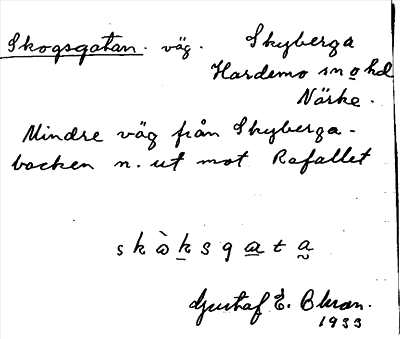 Skogsgatan. väg. Skyberga
Hardemo sn o hd
Närke.
Mindre väg från Skyberga-
backen n. ut mot Rafallet
s k ò k s g a t a
Gustaf E.
1933